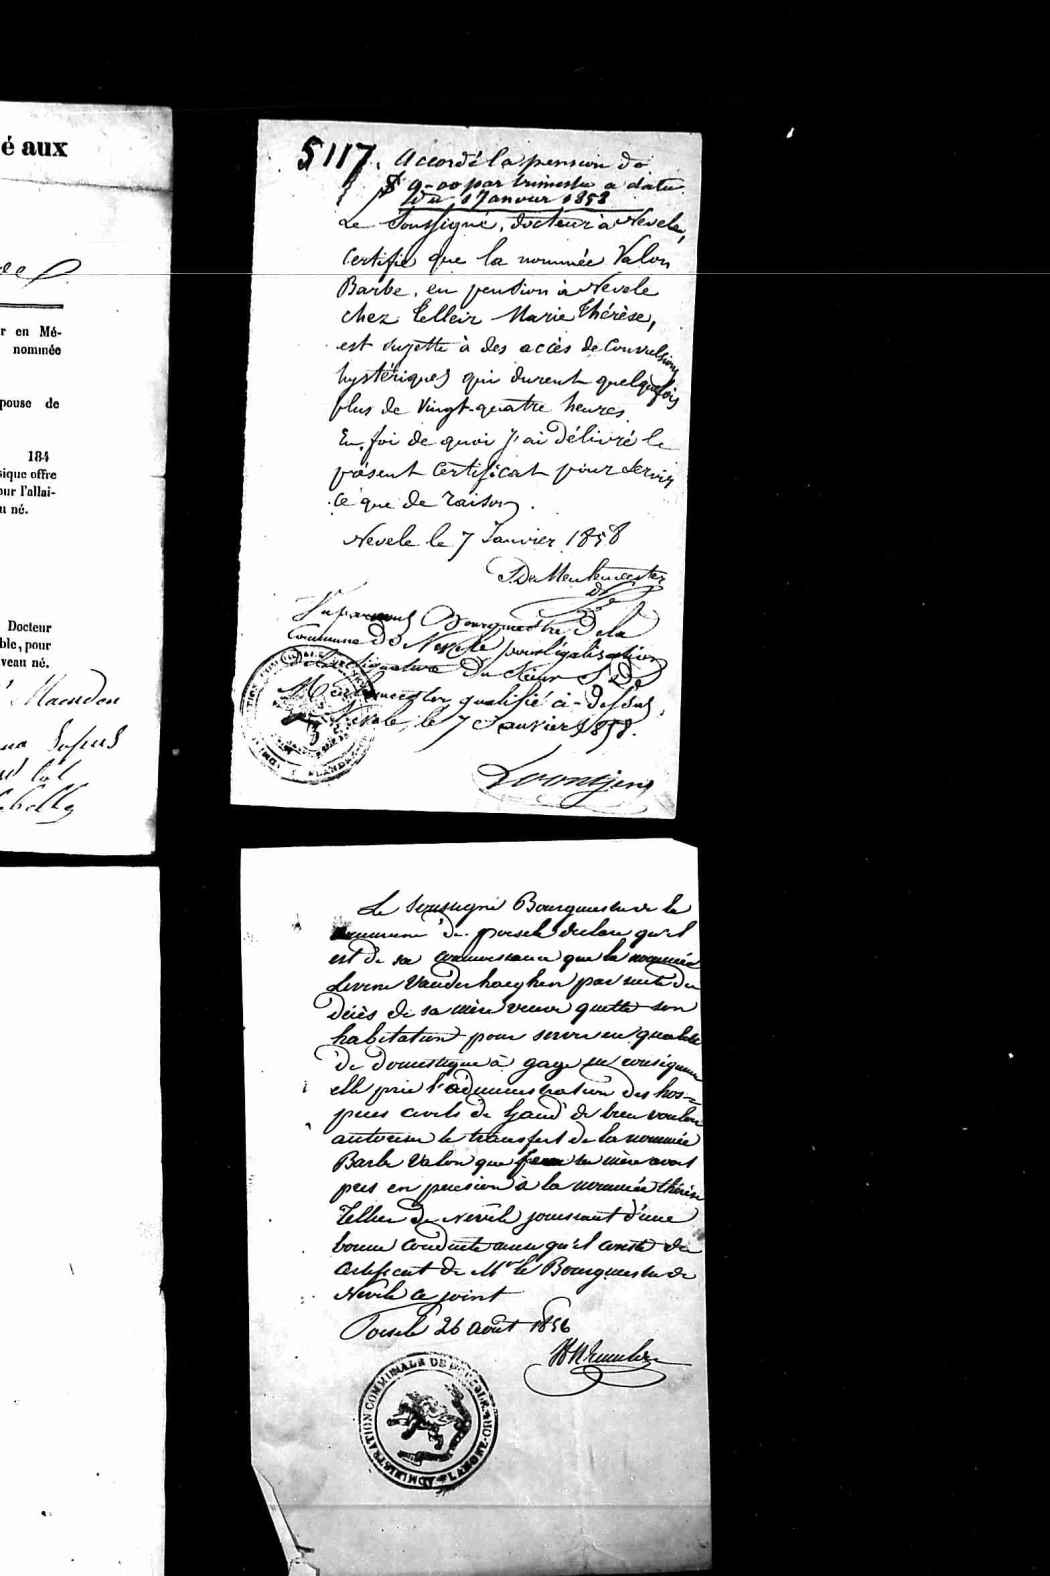 é aux
r en Mé-
nominée
pouse de
184
sique offre
our l'allai-
u né.
Docteur
ble, pour
veau né.
5117. Accordé la pension de
9-00 par trimestre a dater
du 1 Janvier 1858
Le Soussigné, docteur à Nevele,
certifie que la nommée Valon
Barbe, en pension à Nevele
chez Telleir Marie Thérèse,
est sujette à des accès de Convulsions
hystériques qui durent quelquefois
plus de vingt-quatre heures.
En foi de quoi j'ai délivré le
présent certificat pour servir
ce que de raison.
Nevele le 7 Janvier 1858
De Meulemeester
Vu par nous Bourgmestre de la
Commune de Nevele pour légalisation
de la signature du Sieur De
Meulemeester, qualifié ci-dessus,
Nevele, le 7 Janvier 1858.
Le soussigné Bourgmestre de la
commune de Poesele declare qu'il
est de sa connaissance que la nommée
Levine Vanderhaeghen par suite du
décès de sa mère veuve quitte son
habitation pour servir en qualité
de domestique à gage en conséquence
elle prie l'administration des hos=
pices civils de Gand de bien vouloir
autoriser le transfert de la nommée
Barbe Valon que feue sa mère avait
pris en pension à la nommée thérèse
Tellier de Nevele jouissant d'une
bonne conduite ainsi qu'il conste du
certificat de Mr le Bourgmestre de
Nevele ce joint
Poesele 26 août 1856
ADMINISTRATION COMMUNALE DE POESELE